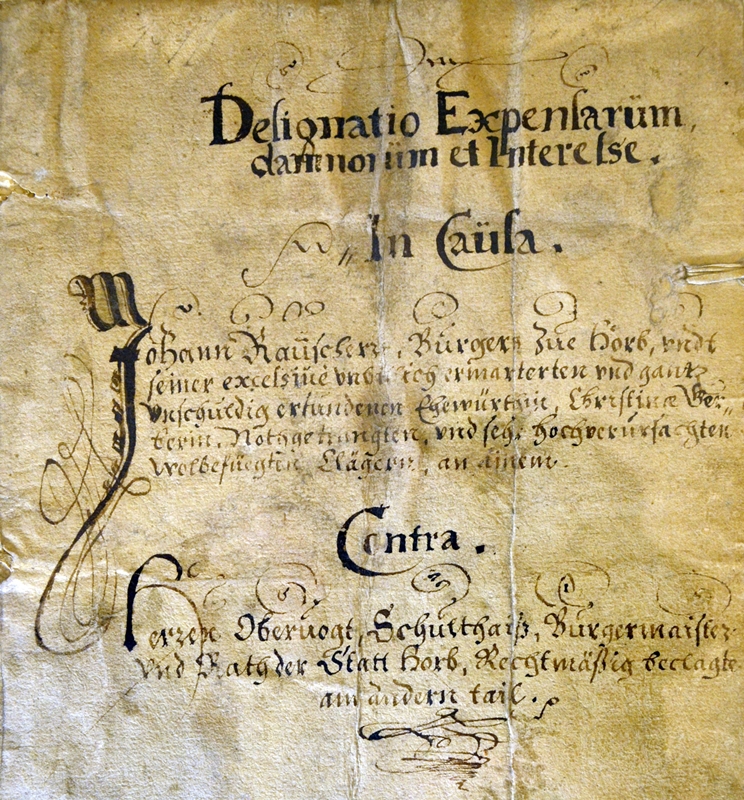 Designatio Expensarüm,
damnorüm et Interesse.
In Caüsa.
Johann Raüschers, Bürgers züe Horb, vndt
seiner excessiuè vnd gemarterten vnd gantz
vnschuldig erfundenen Ehewürthin, Christinæ Ver„
terin, Nothgetrungten, vnd sehr hochverursachten
wolbefüegten Clägern, an ainem.
Contra.
Herren Obervogt, Schulthaiß, Burgermaister
vnd Rath der Statt Horb, Rechtmäßig beclagte
am andern tail.